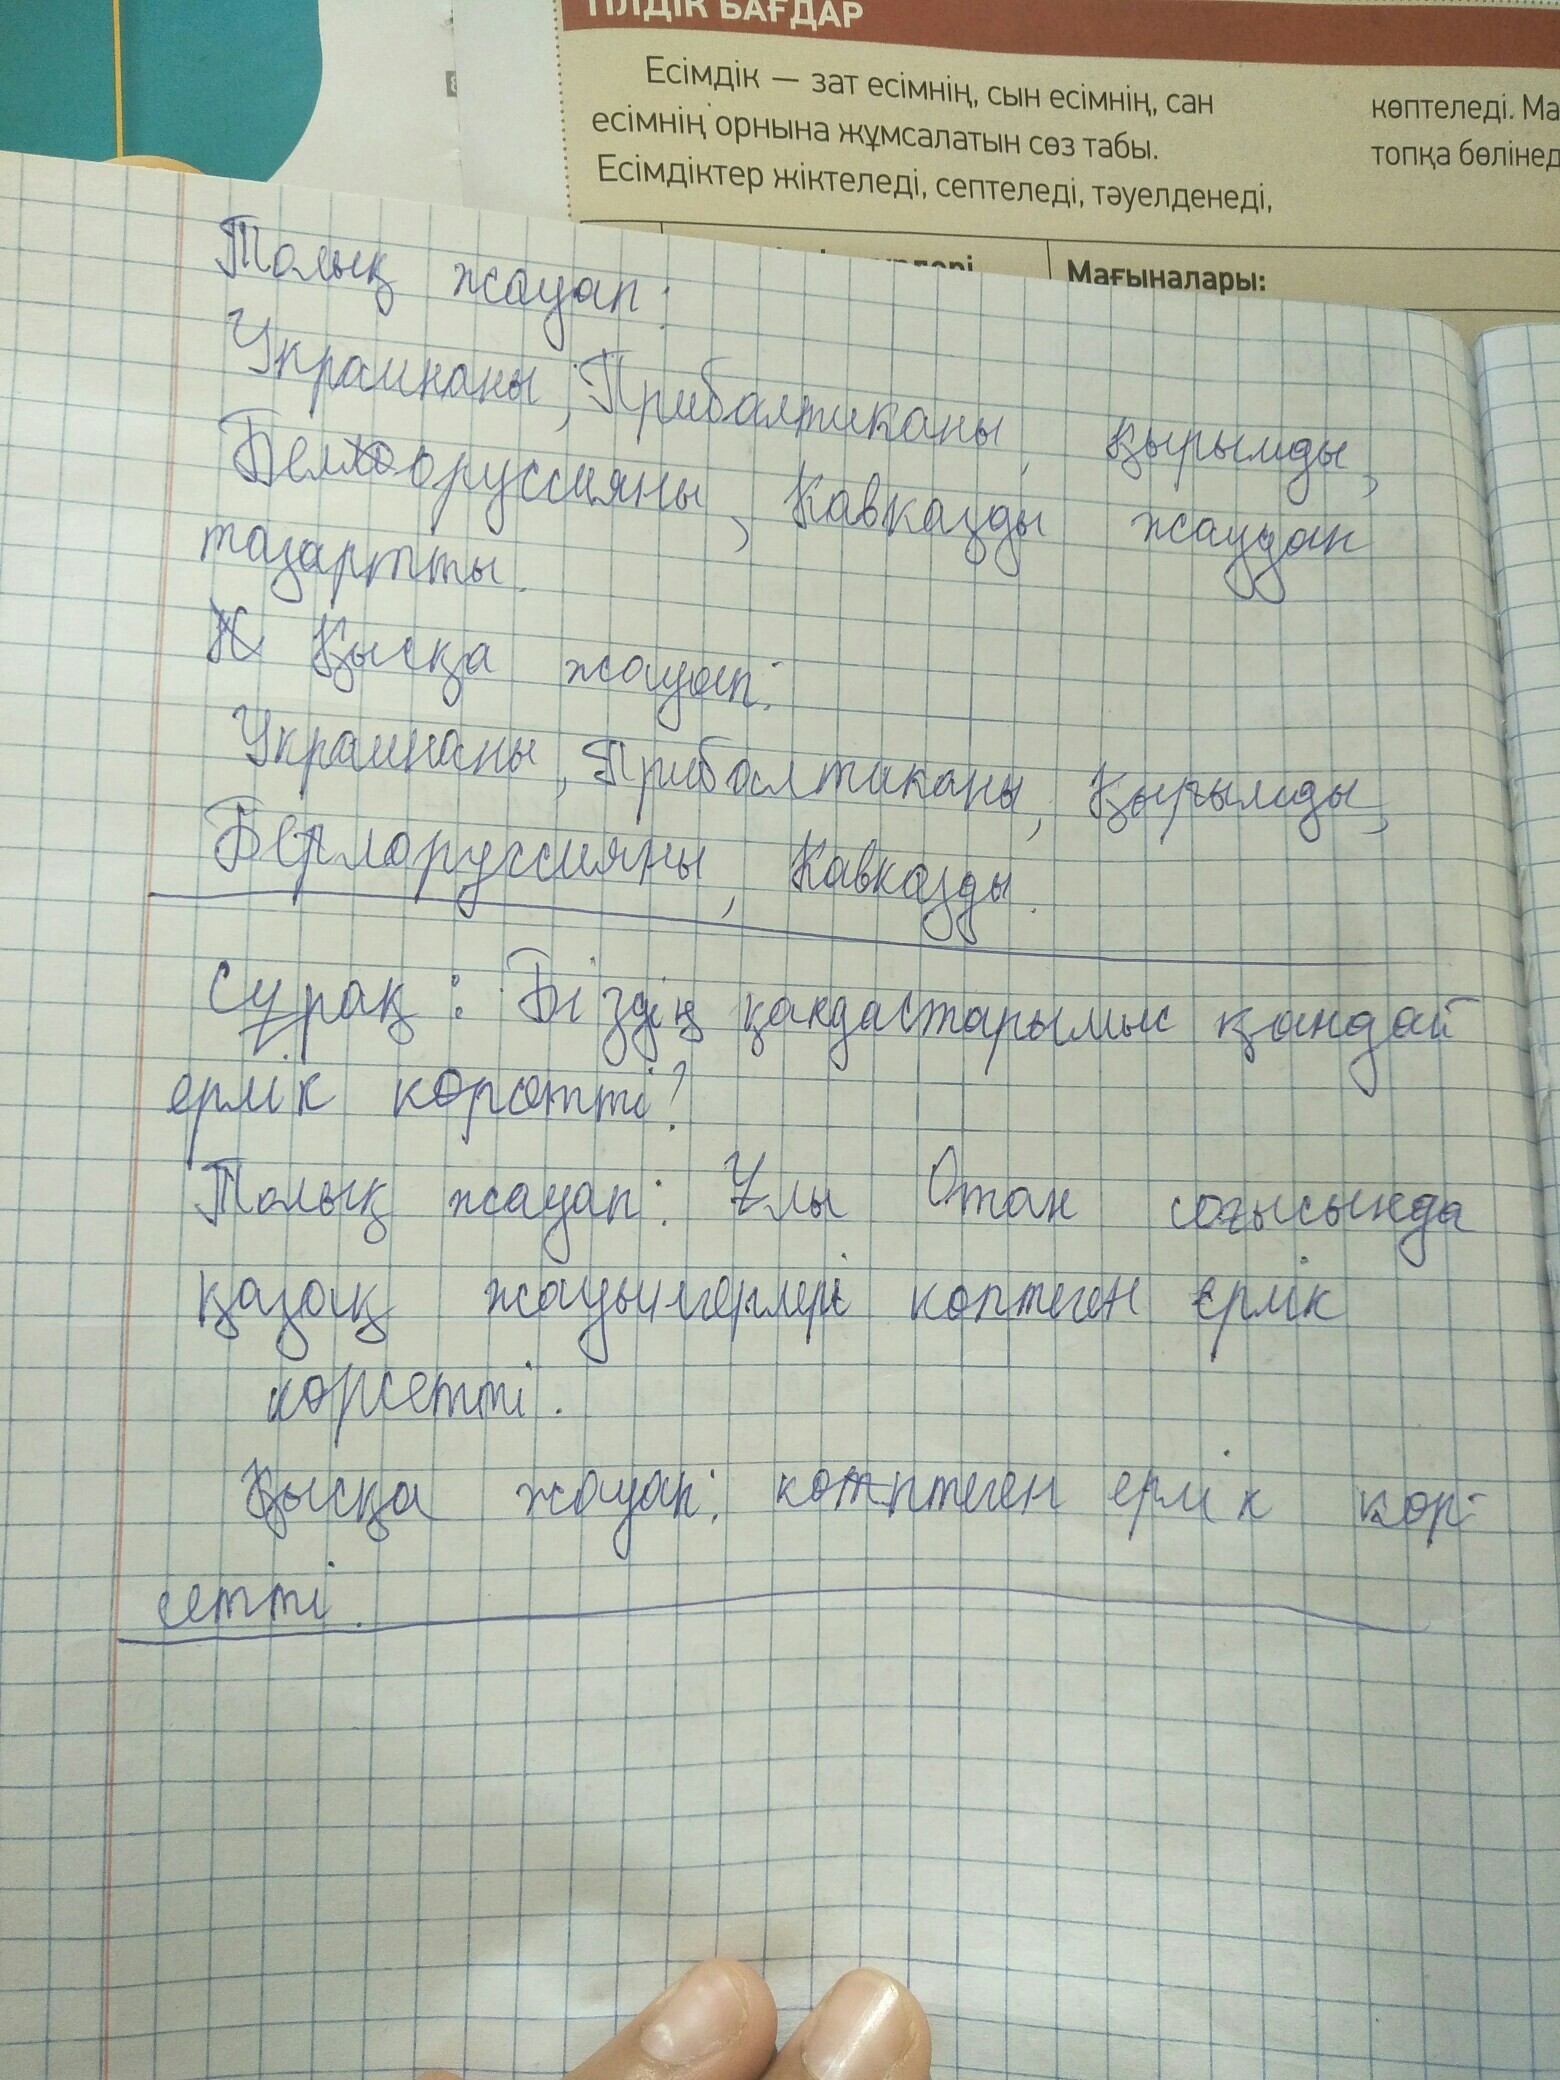 ТІЛДІК БАҒДАР
Есімдік — зат есімнің, сын есімнің, сан
есімнің орнына жұмсалатын сөз табы.
Есімдіктер жіктеледі, септеледі, тәуелденеді,
көптеледі. Ма
топқа бөлінед
Мағыналары:
Толық жауап:
Украинаны, Прибалтиканы, Қырымды,
Белооруссияны, Кавказды жаудан
тазартты.
Қысқа жауап:
Украинаны, Прибалтиканы, Қырымды,
Белоруссияны, Кавказды.
Сұрақ: Біздің қандастарымыс қандай
ерлік көрсетті?
Толық жауап: Ұлы Отан соғысында
қазақ жауынгерлері көптеген ерлік
көрсетті.
Қысқа жауап: көптеген ерлік көр-
сетті.